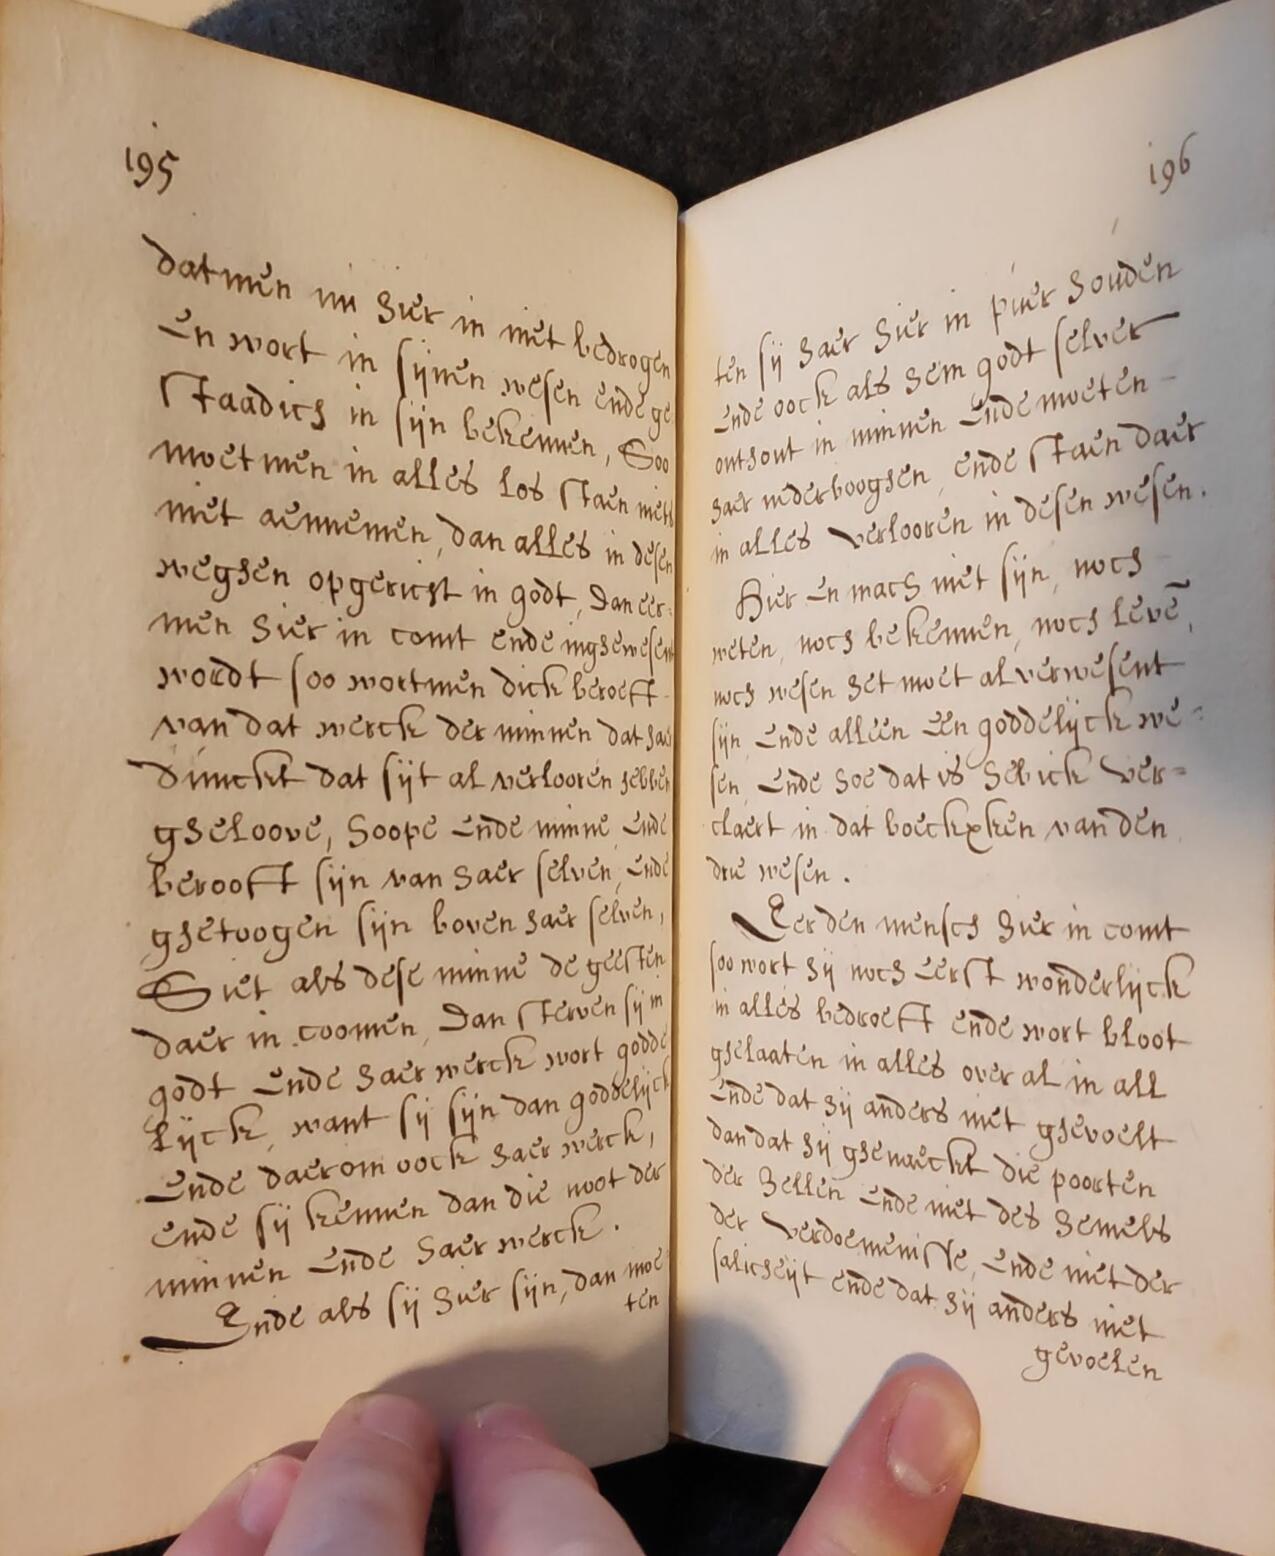 195
datmen nu hier in niet bedrogen
En wort in sijnen wesen ende ge
staadich in sijn bekennen, Soo
moetmen in alles los staen niets
niet aennemen, dan alles in desen
weghen opgericht in godt, dan eer-
men hier in comt ende inghewesent
wordt soo wortmen dick beroeft
van dat werck der minnen dat haer
dunckt dat sijt al verlooren hebben
gheloove, hoope Ende minne Ende
berooft sijn van haer selven, Ende
ghetoogen sijn boven haer selven,
Siet als dese minne de geesten
daer in coomen, dan sterven sij in
godt Ende haer werck wort godde
lijck, want sij sijn dan goddelijck
Ende daerom oock haer werck,
ende sij kennen dan die noot der
minnen Ende haer werck.
Ende als sij hier sijn, dan moe
ten
196
ten sij haer hier in puer houden
Ende oock als hem godt selver
onthout in minnen Ende moeten
haer nederbooghen, ende staen daer
in alles verlooren in desen wesen.
Hier En mach niet sijn, noch
weten, noch bekennen, noch levē,
noch wesen het moet al verwesent
sijn, Ende alleen Een goddelijck we-
sen, Ende hoe dat is heb ick ver-
claert in dat boeckxken van den
drie wesen.
Eer den mensch hier in comt
soo wort hij noch Eerst wonderlijck
in alles bedroeft ende wort bloot
ghelaaten in alles over al in all
Ende dat hij anders niet ghevoelt
dan dat hij ghenaeckt die poorten
der hellen Ende niet des hemels
der verdoemenisse, Ende niet der
salicheijt ende dat hij anders niet
gevoelen